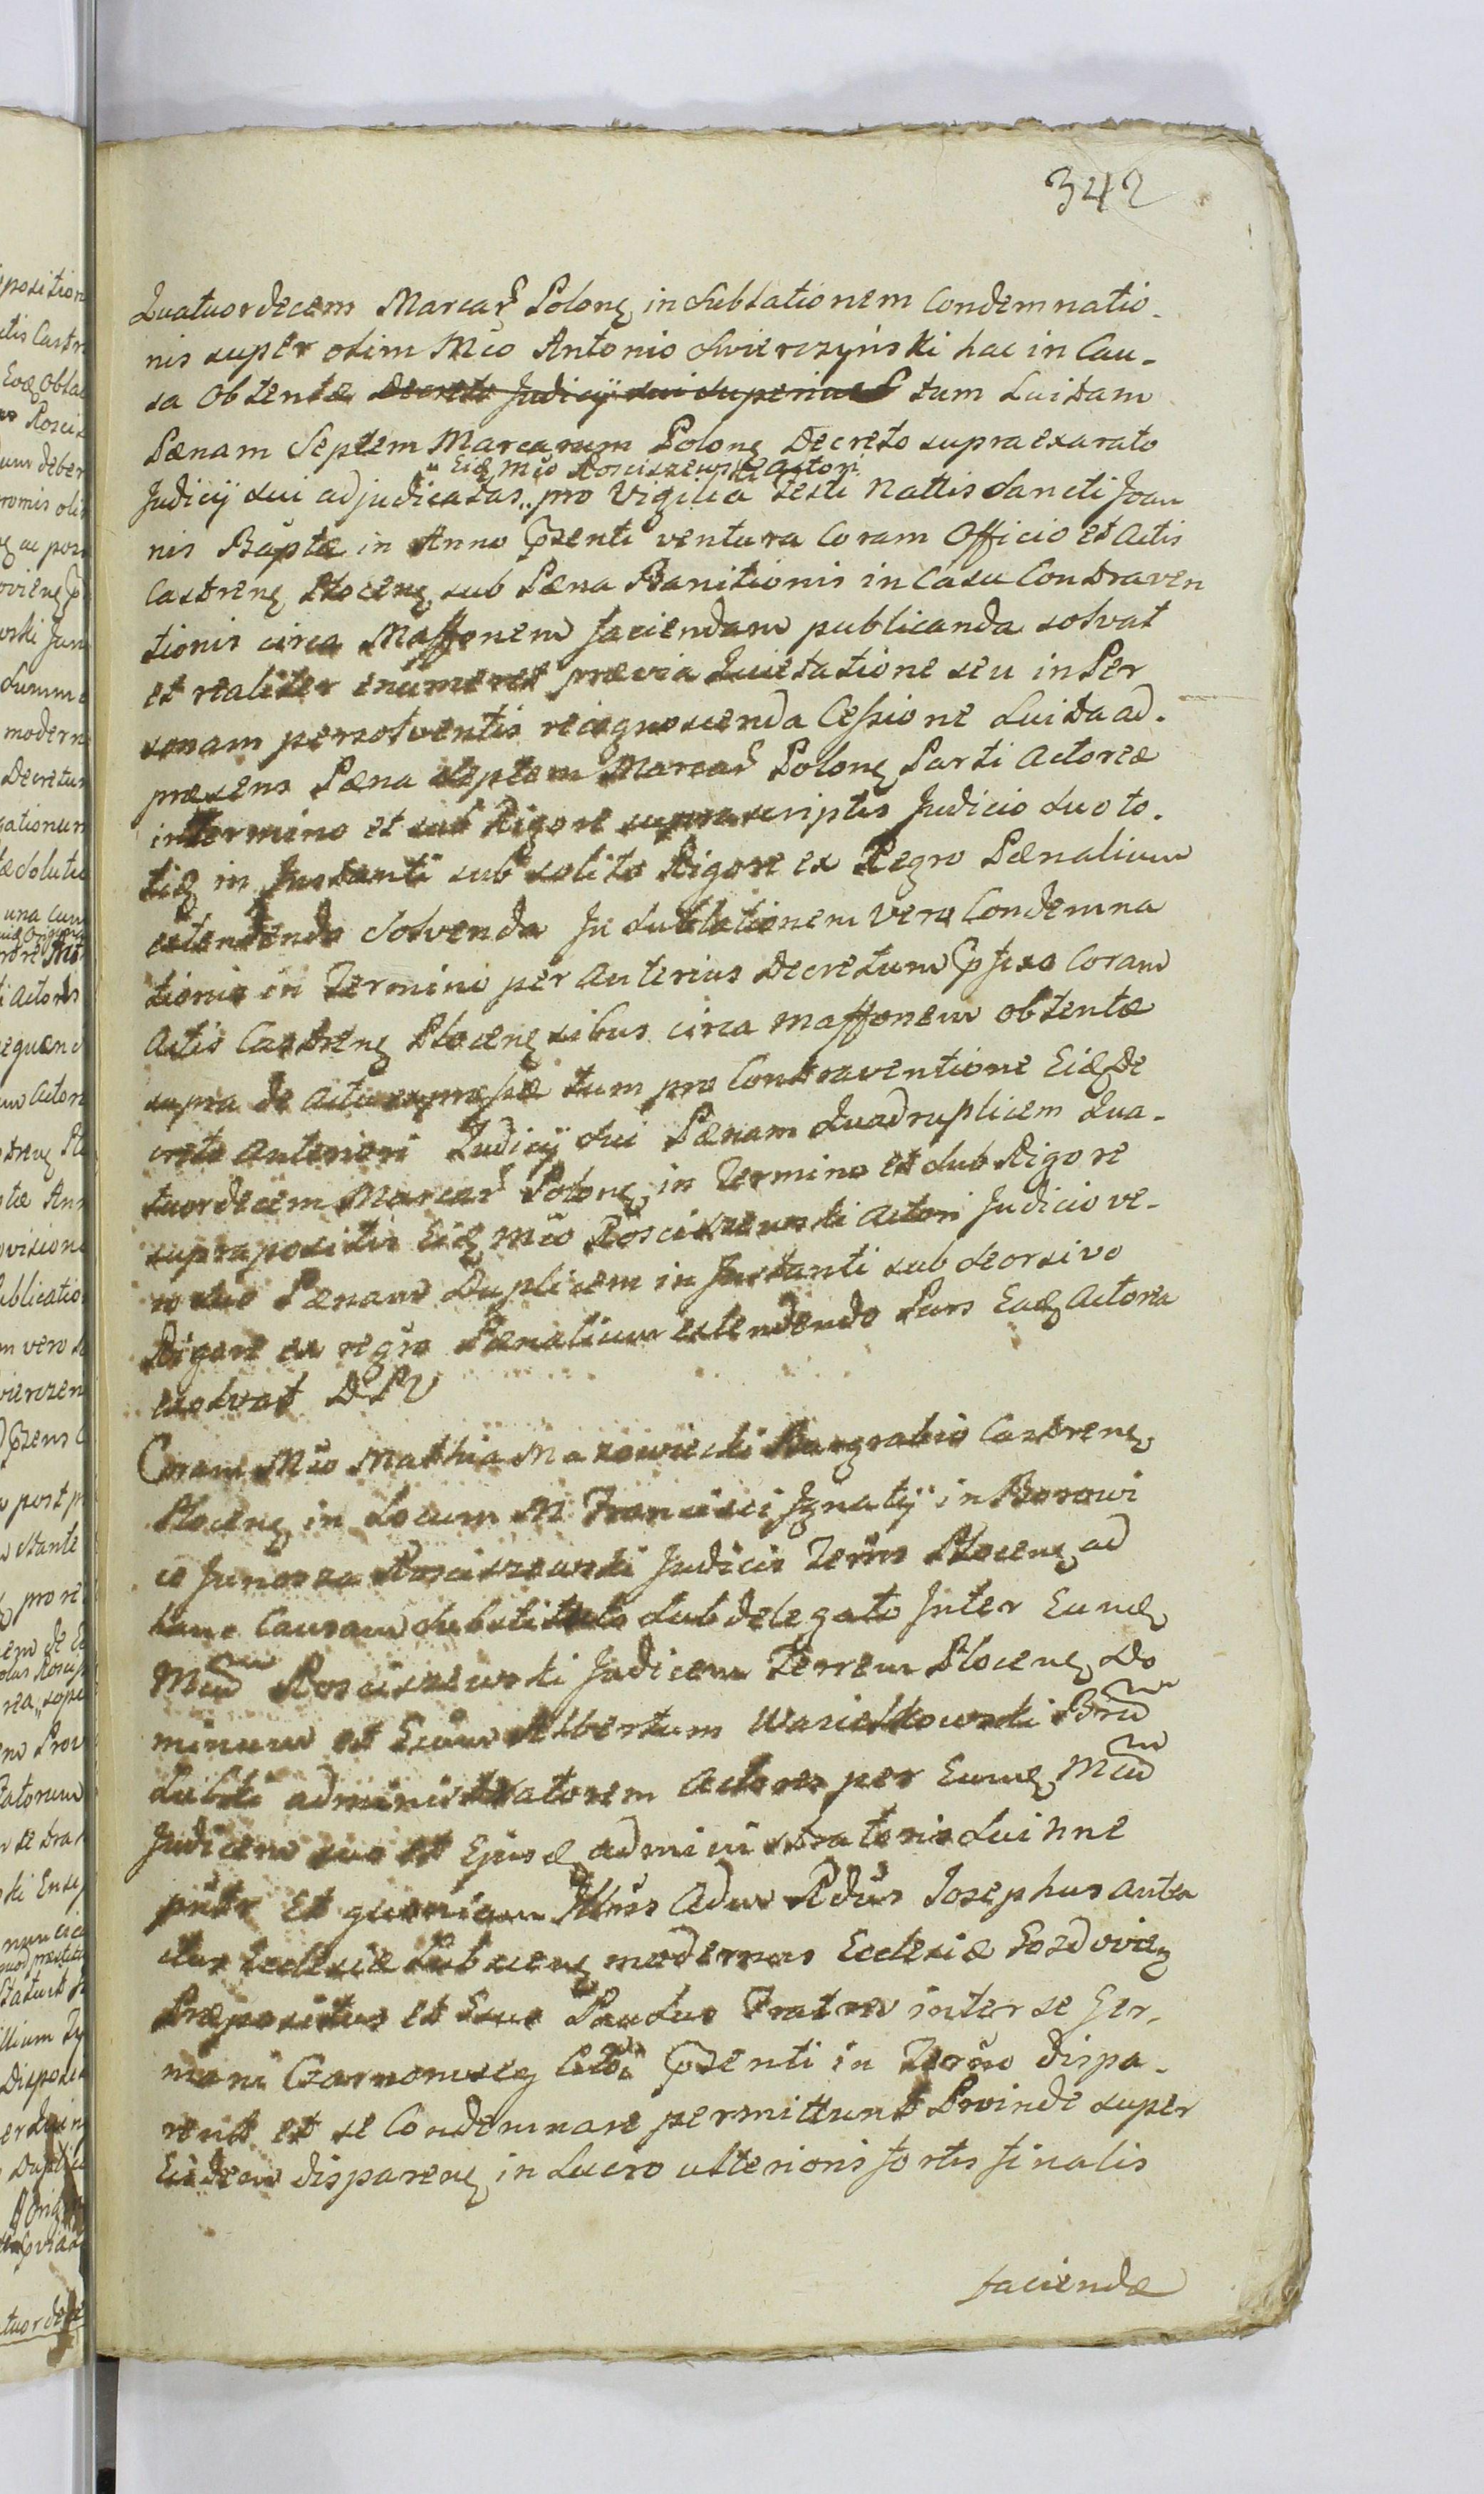 342
Quatuordecem Marcar Polonę in Sublationem Condemnatio-
nis super olim Mco Antonio Swierczynski hac in Cau-
sa Obtentæ Decreto Judicij sui superius tum Luitam
Pænam Septem Marcarum Polonę Decreto supraexarato
„ Eidę Mco Rosciszewski Actori
Judicij sui adjudicatas „ pro Vigilia Festi Nattis Sancti Joan
nis Baptæ in Anno pzenti ventura Coram Officio et Actis
Castrenę Plocenę sub Pæna Banitionis in Casu Contraven
tionis circa Maffonem faciendam publicanda solvat
et realiter enumeret prævia Quietatione seu in Per
sonam persolventis recognoscenda Cessione Luita ad-
præsens Pæna septem Marcar Polonę Parti Actoreæ
in Termino et sub Rigore suprascriptis Judicio suo to-
tię in Instanti sub solito Rigore ex Regro Pænalium
extendendo Solvenda In Sublationem vero Condemna
tionis in Termino per Anterius Decretum pfixo Coram
Actis Castrenę Plocenę sibus circa Maffonem obtentæ
supra de Actu expressæ tum pro Contraventione Eidę De
creto Anteriori Judicij sui Pænam Quadruplicem Qua-
tuordecem Marcar Polonę in Termino et sub Rigore
suprapositis Eidę Mco Rosciszewski Actori Judicio ve-
ro suo Pænam Duplicem in Instanti sub deorsivo
Rigore ex regro Pænalium extendendo Pars Eadę Actorea
exolvat D P V
Coram Mco Mathia Mazowiecki Burgrabio Castrenę
Plocenę in Locum M Francisci Ignatij in Borowi
ce Junosza Rosciszewski Judicis Terris Plocenę ad
hanc Causam Substituto Subdelegato Inter Eundę
Mcum Rosciszewski Judicem Terrem Plocenę Do
minum et Albertum
administratorem Actores per Eundę Mcum
Judicem suo et Ejusdę administratoris sui hne
putr Et quoniam Illris Adm Rdus Josephus Anten
tus Ecclesiæ modernus Ecclesiæ Gozdovienę
Præpositus et Paulus Fratres inter se Ger-
mani Citti pzenti in Termo dispa-
rent et se Condemnare permittunt Proinde super
Eisdem disparenę in Lucro ulterioris fortis finalis
faciendæ